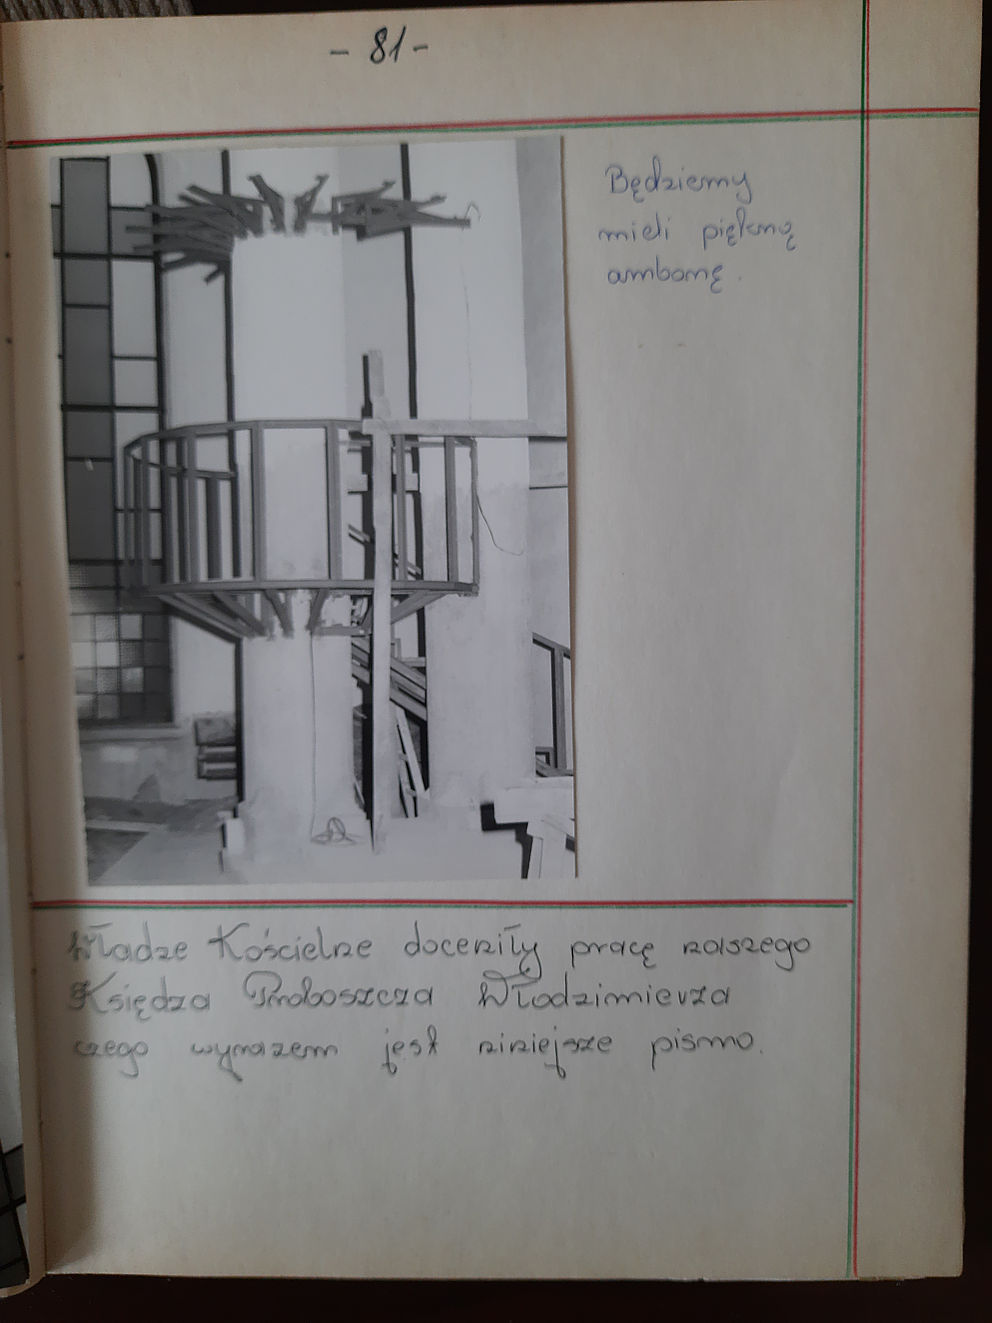 - 81 -
Będziemy
mieli piękną
ambonę.
Władze Kościelne doceniły pracę naszego
Księdza Proboszcza Włodzimierza
czego wyrazem jest niniejsze pismo.